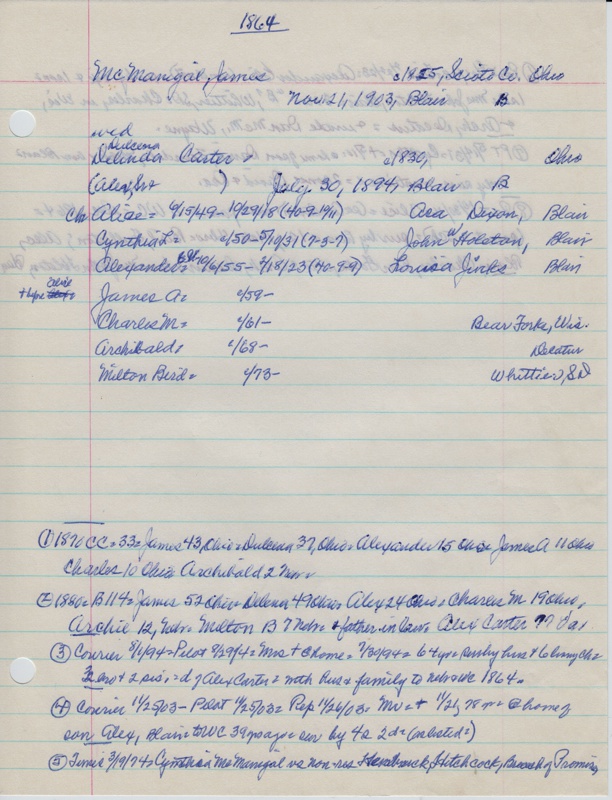 1864
McManigal, James c1825, Scioto Co. Ohio
Nov 21, 1903, Blair B
wed
Dulcena
Delinda Carter = c1830, Ohio
(Alex, Sr ) July 30, 1894, Blair B
ch Alice = 9/15/49- 10/29/18 (40-9-19/11) Asa Dixon, Blair
Cynthia L = c/50- 5/10/31 (7-3-7) John W Holston, Blair
Alexander = 10/6/55- 2/18/23 (40-9-9) Louisa Jinks Blair
James A = c/59-
Charles M = c/61- Bear Forks, Wis.
Archibald = c/68- Decatur
Milton Bird = c/73- Whittier, SD
① 1870 CC = 33 = James 43, Ohio = Dulcena 37, Ohio = Alexander 15 Ohio = James A 11 Ohio
Charles 10 Ohio Archibald 2 Nebr =
② 1880 = B 114 = James 52 Ohio = Delena 49 Ohio = Alex 24 Ohio = Charles M 19 Ohio,
Archie 12, Nebr = Milton B 7 Nebr = + father in law = Alex Carter 77 Va.
③ Courier 8/1/94 = Pilot 8/2/94 = Mrs + @ home = 7/30/94 = 64 yr = surv by hus + 6 ch =
3 bro + 2 sis = d of Alex Carter = mth hus + family to Nebr in 1864 =
④ Courier 11/25/03 - Pilot 11/25/03 = Rep 11/26/03 = Mc = + 11/21, 78 yr = @ home of
son Alex, Blair = to WC 39 yrs ago = sur by 4s 2d = (as listed =)
⑤ Times 3/19/74 = Cynthia McManigal vs non-res Hitchcock, Breach of Promise,